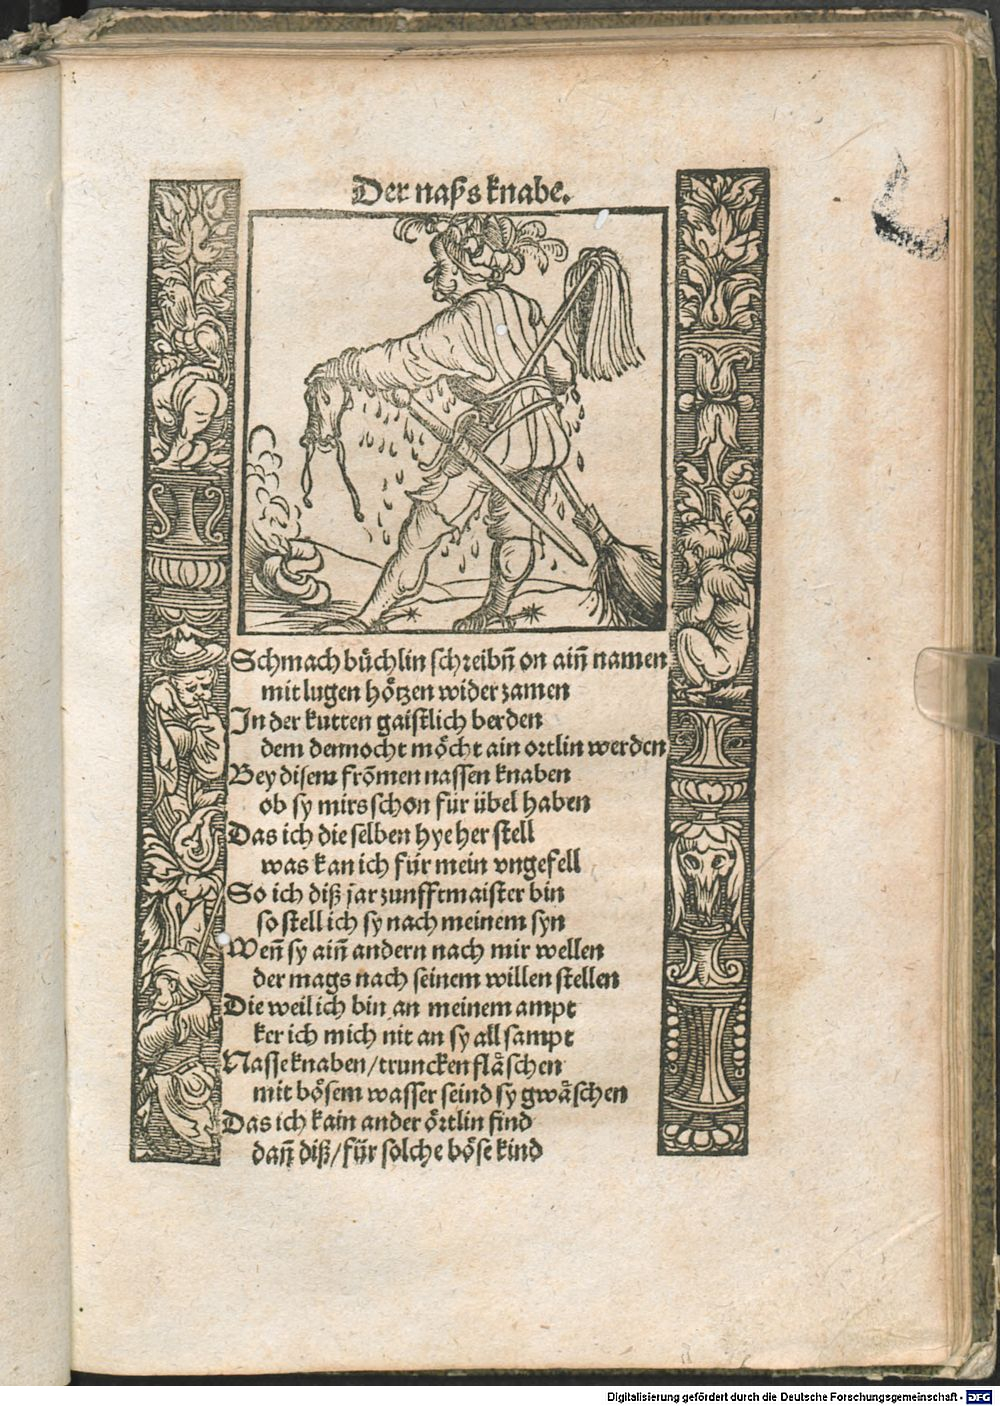 Der naſſs knabe.
Schmach bu̎chlin ſchreibn̄ on ain̄ namen
mit lugen ho̎tzen wider zamen
In der kutten gaiſtlich berden
dem dennocht mo̎cht ain ortlin werden
Bey diſem fro̅men naſſen knaben
ob ſy mirs ſchon für übel haben
Das ich die ſelben hye her ſtell
was kan ich für mein vngefell
So ich diß jar zunfftmaiſter bin
ſo ſtell ich ſy nach meinem ſyn
Wen̄ ſy ain̄ andern nach mir wellen
der mags nach ſeinem willen ſtellen
Die weil ich bin an meinem ampt
ker ich mich nit an ſy all ſampt
Naſſe knaben/truncken fla̎ſchen
mit bo̎ſem waſſer ſeind ſy gwa̎ſchen
Das ich kain ander o̎rtlin find
dan̄ diß/für ſolche bo̎ſe kind
Digitalisierung gefördert durch die Deutsche Forschungsgemeinschaft - DFG